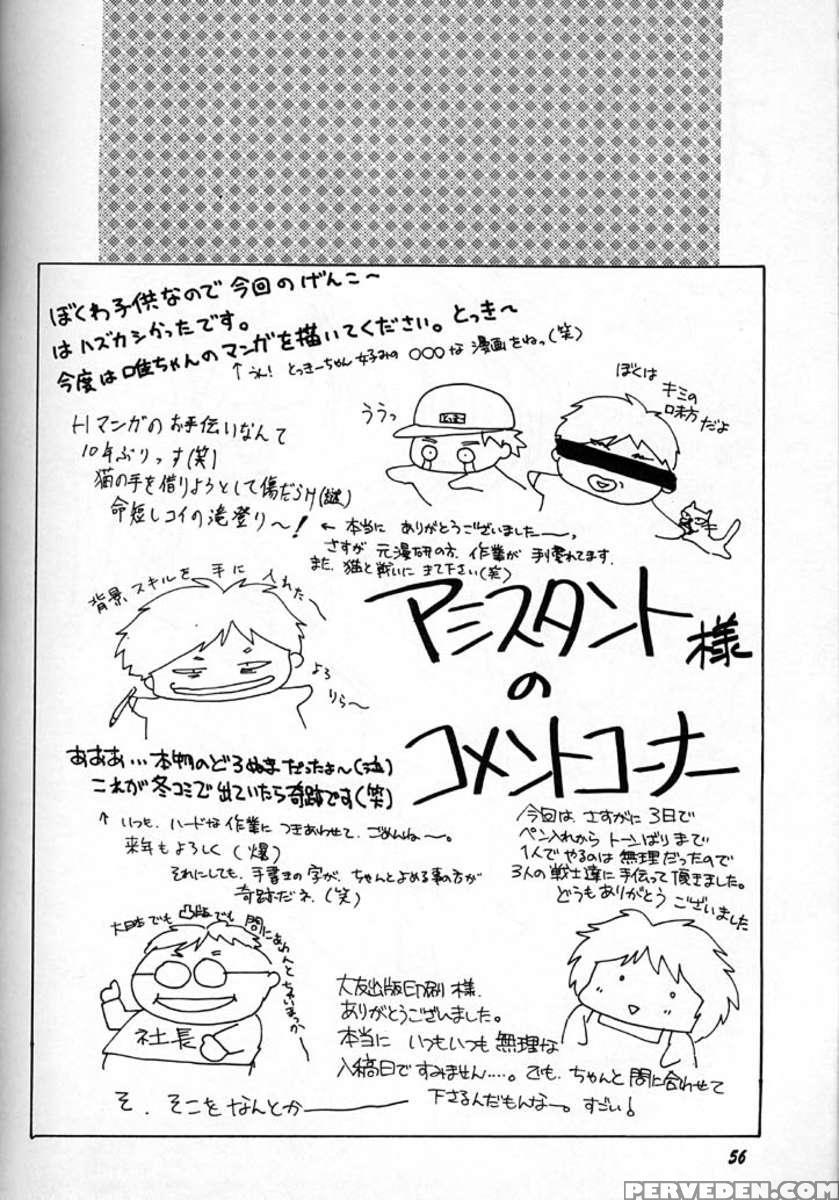 ぼくわ子供なので今回のげんこ〜
はハズカシかったです。
今度は唯ちゃんのマンガを描いてください。とっき〜
↑うん！とっきーちゃん好みの ○○○な漫画をねっ(笑)
ううっ
ぼくは
キミの
味方だよ
Hマンガのお手伝いなんて
10年ぶりっす(笑)
猫の手を借りようとして傷だらけ(謎)
命短しコイの滝登り〜!
← 本当に ありがとうございました——っ
さすが 元漫研の方、作業が 手慣れてます。
また、猫と戦いに きて下さい(笑)
背景、スキルを 手に 入れた〜
よろ
りら〜
アシスタント様
の
コメントコーナー
あああ…本物のどろぬまだったょ〜(泣)
これが冬コミで出ていたら奇跡です(笑)
↑ いつも、ハードな作業に つきあわせて、ごめんね〜。
来年もよろしく(爆)
それにしても、手書きの字が、ちゃんとよめる事の方が
奇跡だネ。(笑)
今回は、さすがに 3日で
ペン入れから トーンばりまで
1人で やるのは 無理だったので
3人の戦士達に 手伝って 頂きました。
どうも ありがとう ございました
大日本でも 凸版でも 間にあわんと
社長
大友出版印刷 様、
ありがとうございました。
本当に いつもいつも 無理な
入稿日ですみません‥‥。でも、ちゃんと 間に合わせて
下さるんだもんなー。すごい!
そ、そこをなんとか———
56
PERVEDEN.COM